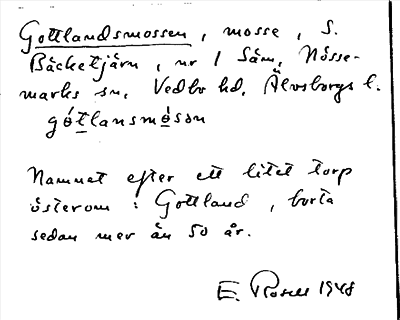 Gottlandsmossen, mosse, S.
Bäcketjärn, nr 1 Säm, Nösse-
marks sn, Vedbo hd, Älvsborgs l.
gótlansmòsən
Namnet efter ett litet torp
österom: Gottland, borta
sedan mer än 50 år.
E. Rosell 1948